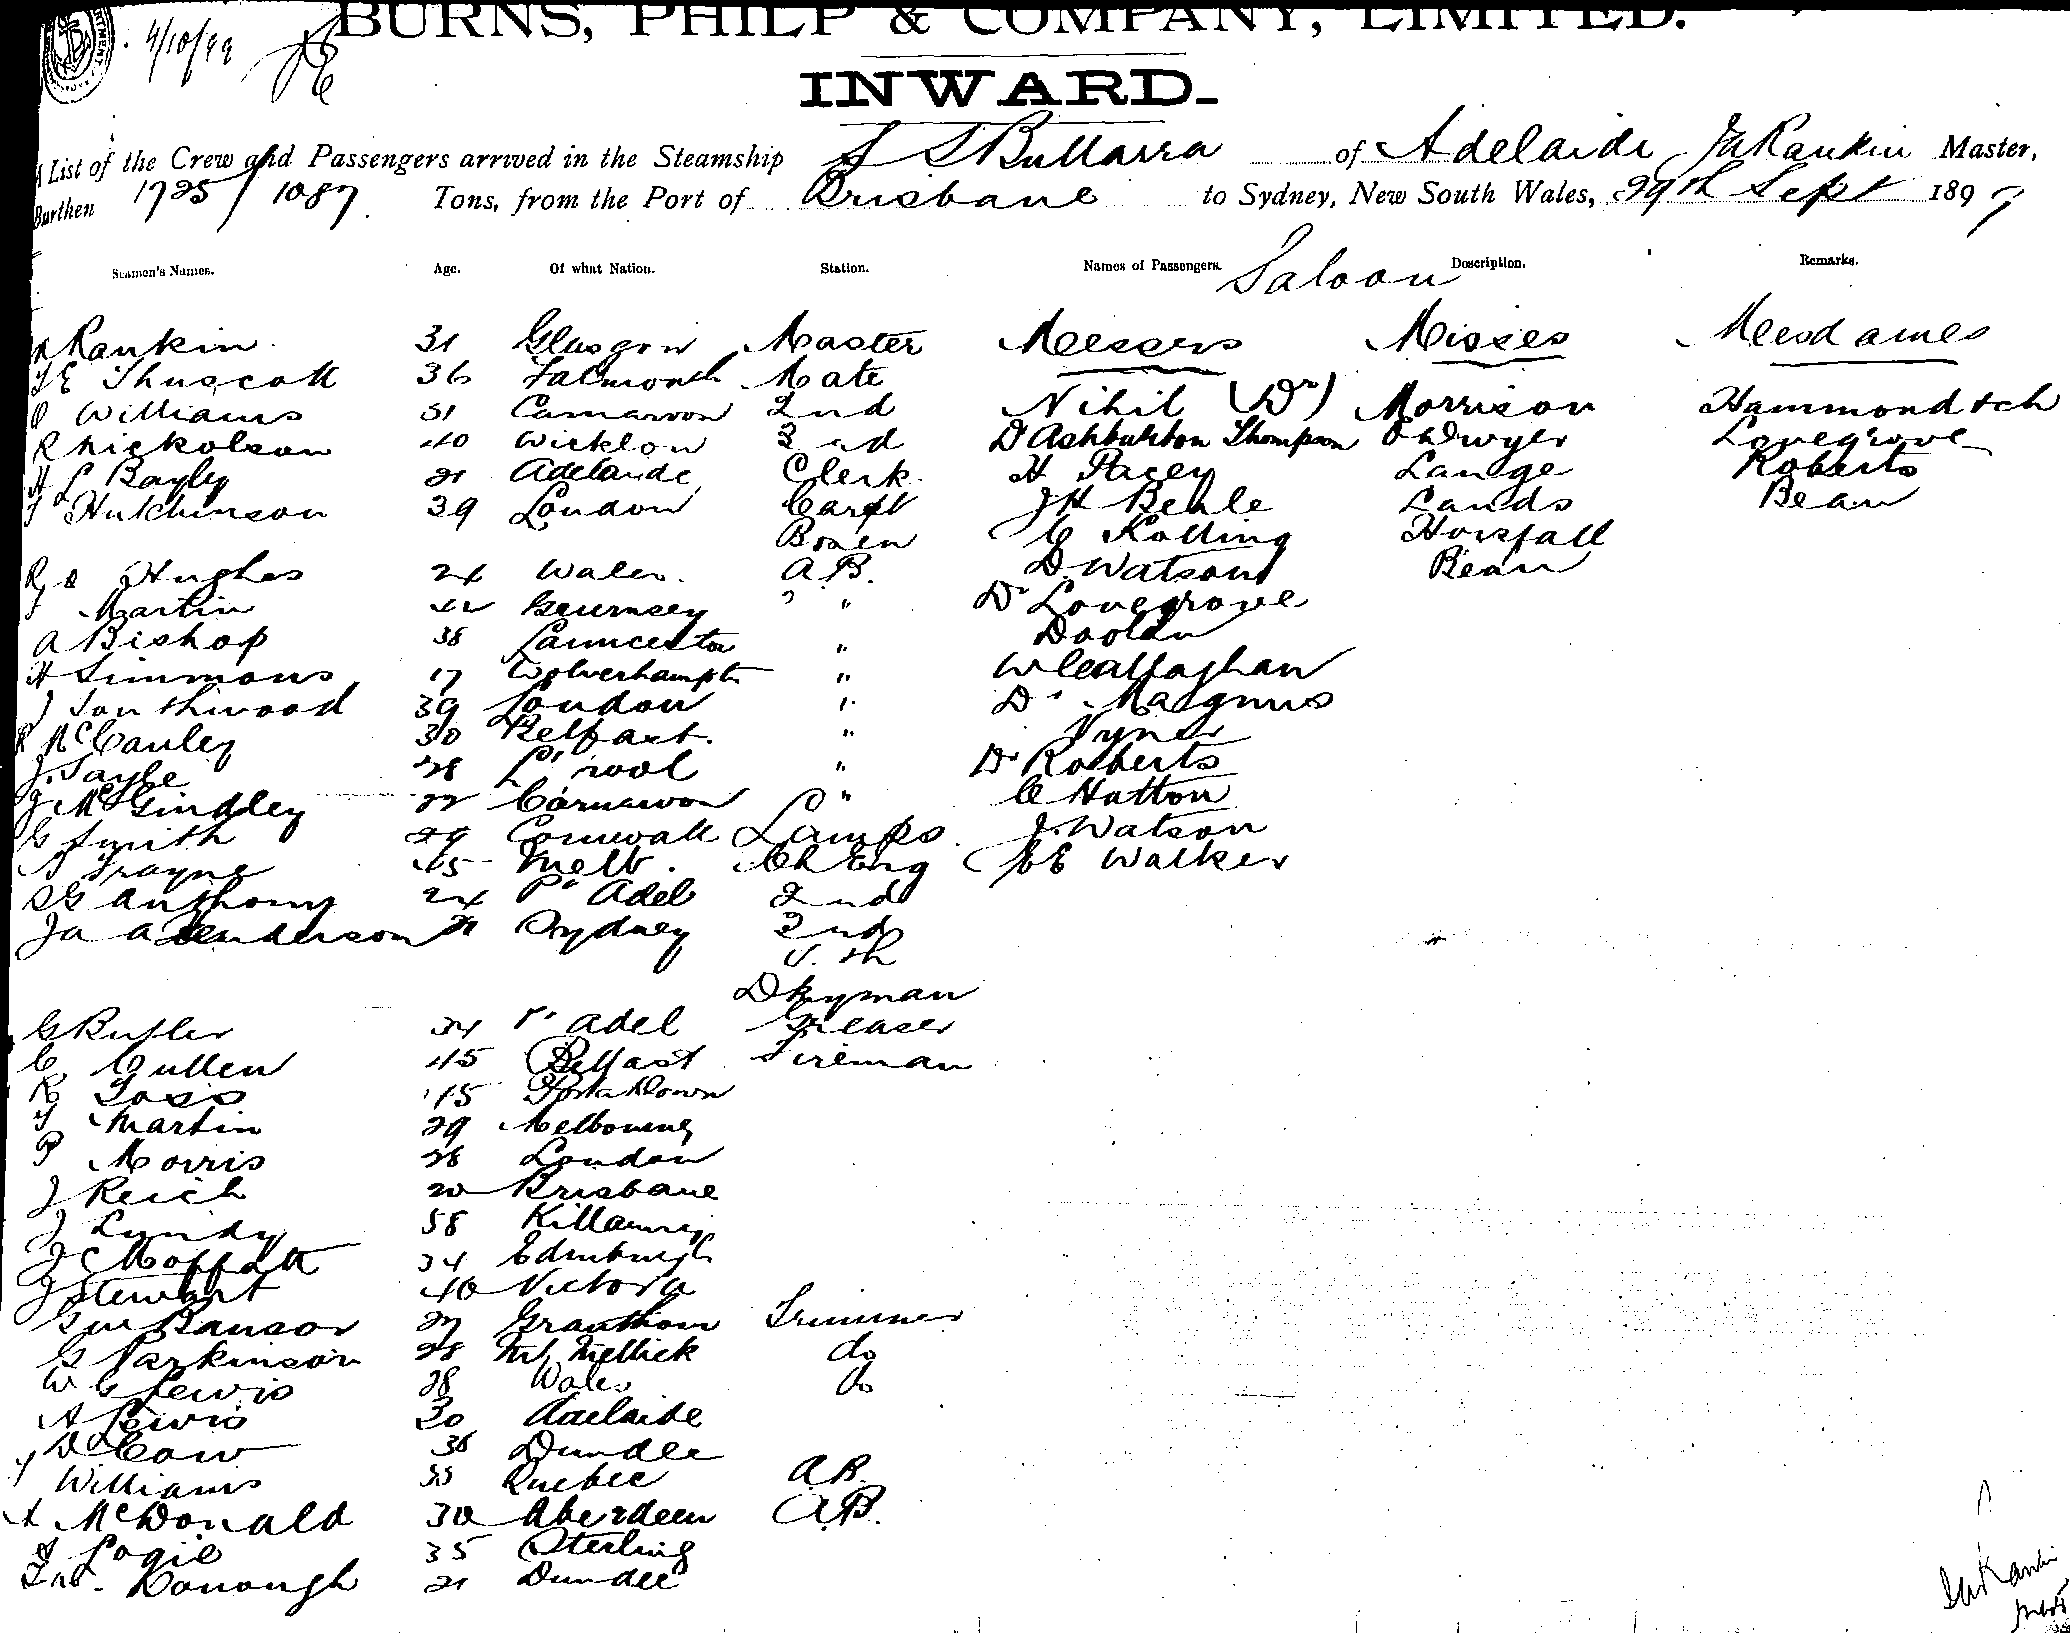 4/10/99
BURNS, PHILP & COMPANY, LIMITED.
INWARD.
A List of the Crew and Passengers arrived in the Steamship S S Bullarra of Adelaide Rankin Master,
Burthen 1725/1087 Tons, from the Port of Brisbane to Sydney, New South Wales, 29th Sept 1897
Seamen's Names. Age. Of what Nation. Station. Names of Passengers. Saloon Description. Remarks.
Rankin 31 Glasgow Master Messers Misses Mesdames
Thuscott 36 Falmouth Mate
Williams 31 Carnarvon 2nd Nihil (Dr) Morrison Hammond & ch
R Nickolson 40 Wicklow 3rd Dr Ashburton Thompson O'Dwyer Lovegrove
H L Bayly 21 Adelaide Clerk H Pacey Lange Roberts
Hutchinson 39 London Carpt J H Beale Lands Bean
Bosen C Kolling Horsfall
Hughes 24 Wales. A.B. D Watson Bean
Martin Guernsey " " Dr Lovegrove
A Bishop 38 Launceston " Doolan
H Simmons 17 Wolverhampt " W Callaghan
J Southwood 39 London " Dr Magnus
McCauley 30 Belfast. " Vyner
J. Sayle 28 L'pool " Dr Roberts
J McGindley 22 Carnarvon " C Hatton
G Smith 29 Cornwall Lamps. J. Watson
Trayne 45 Melb. Ch Eng E Walker
Anthony 24 Pt Adel 2nd
Ja A Henderson Sydney 3rd
4th
Dkyman
G Butler 34 Pt Adel Greaser
C Cullen 45 Belfast Fireman
R 45 Portadown
Martin 29 Melbourne
P Morris 28 London
J Reich 20 Brisbane
J Lyndy 58 Killarney
J C Moffatt 34 Edinburgh
J Stewart 40 Victoria
Ransor 27 Grantham Trimmer
G Parkinson 28 Mt Mellick do
W G Lewis 28 Wales do
A Lewis 30 Adelaide
D Cow 36 Dundee
Williams 35 Quebec A.B.
A McDonald 30 Aberdeen A.B.
Logie 35 Sterling
Donough 21 Dundee
Rankin